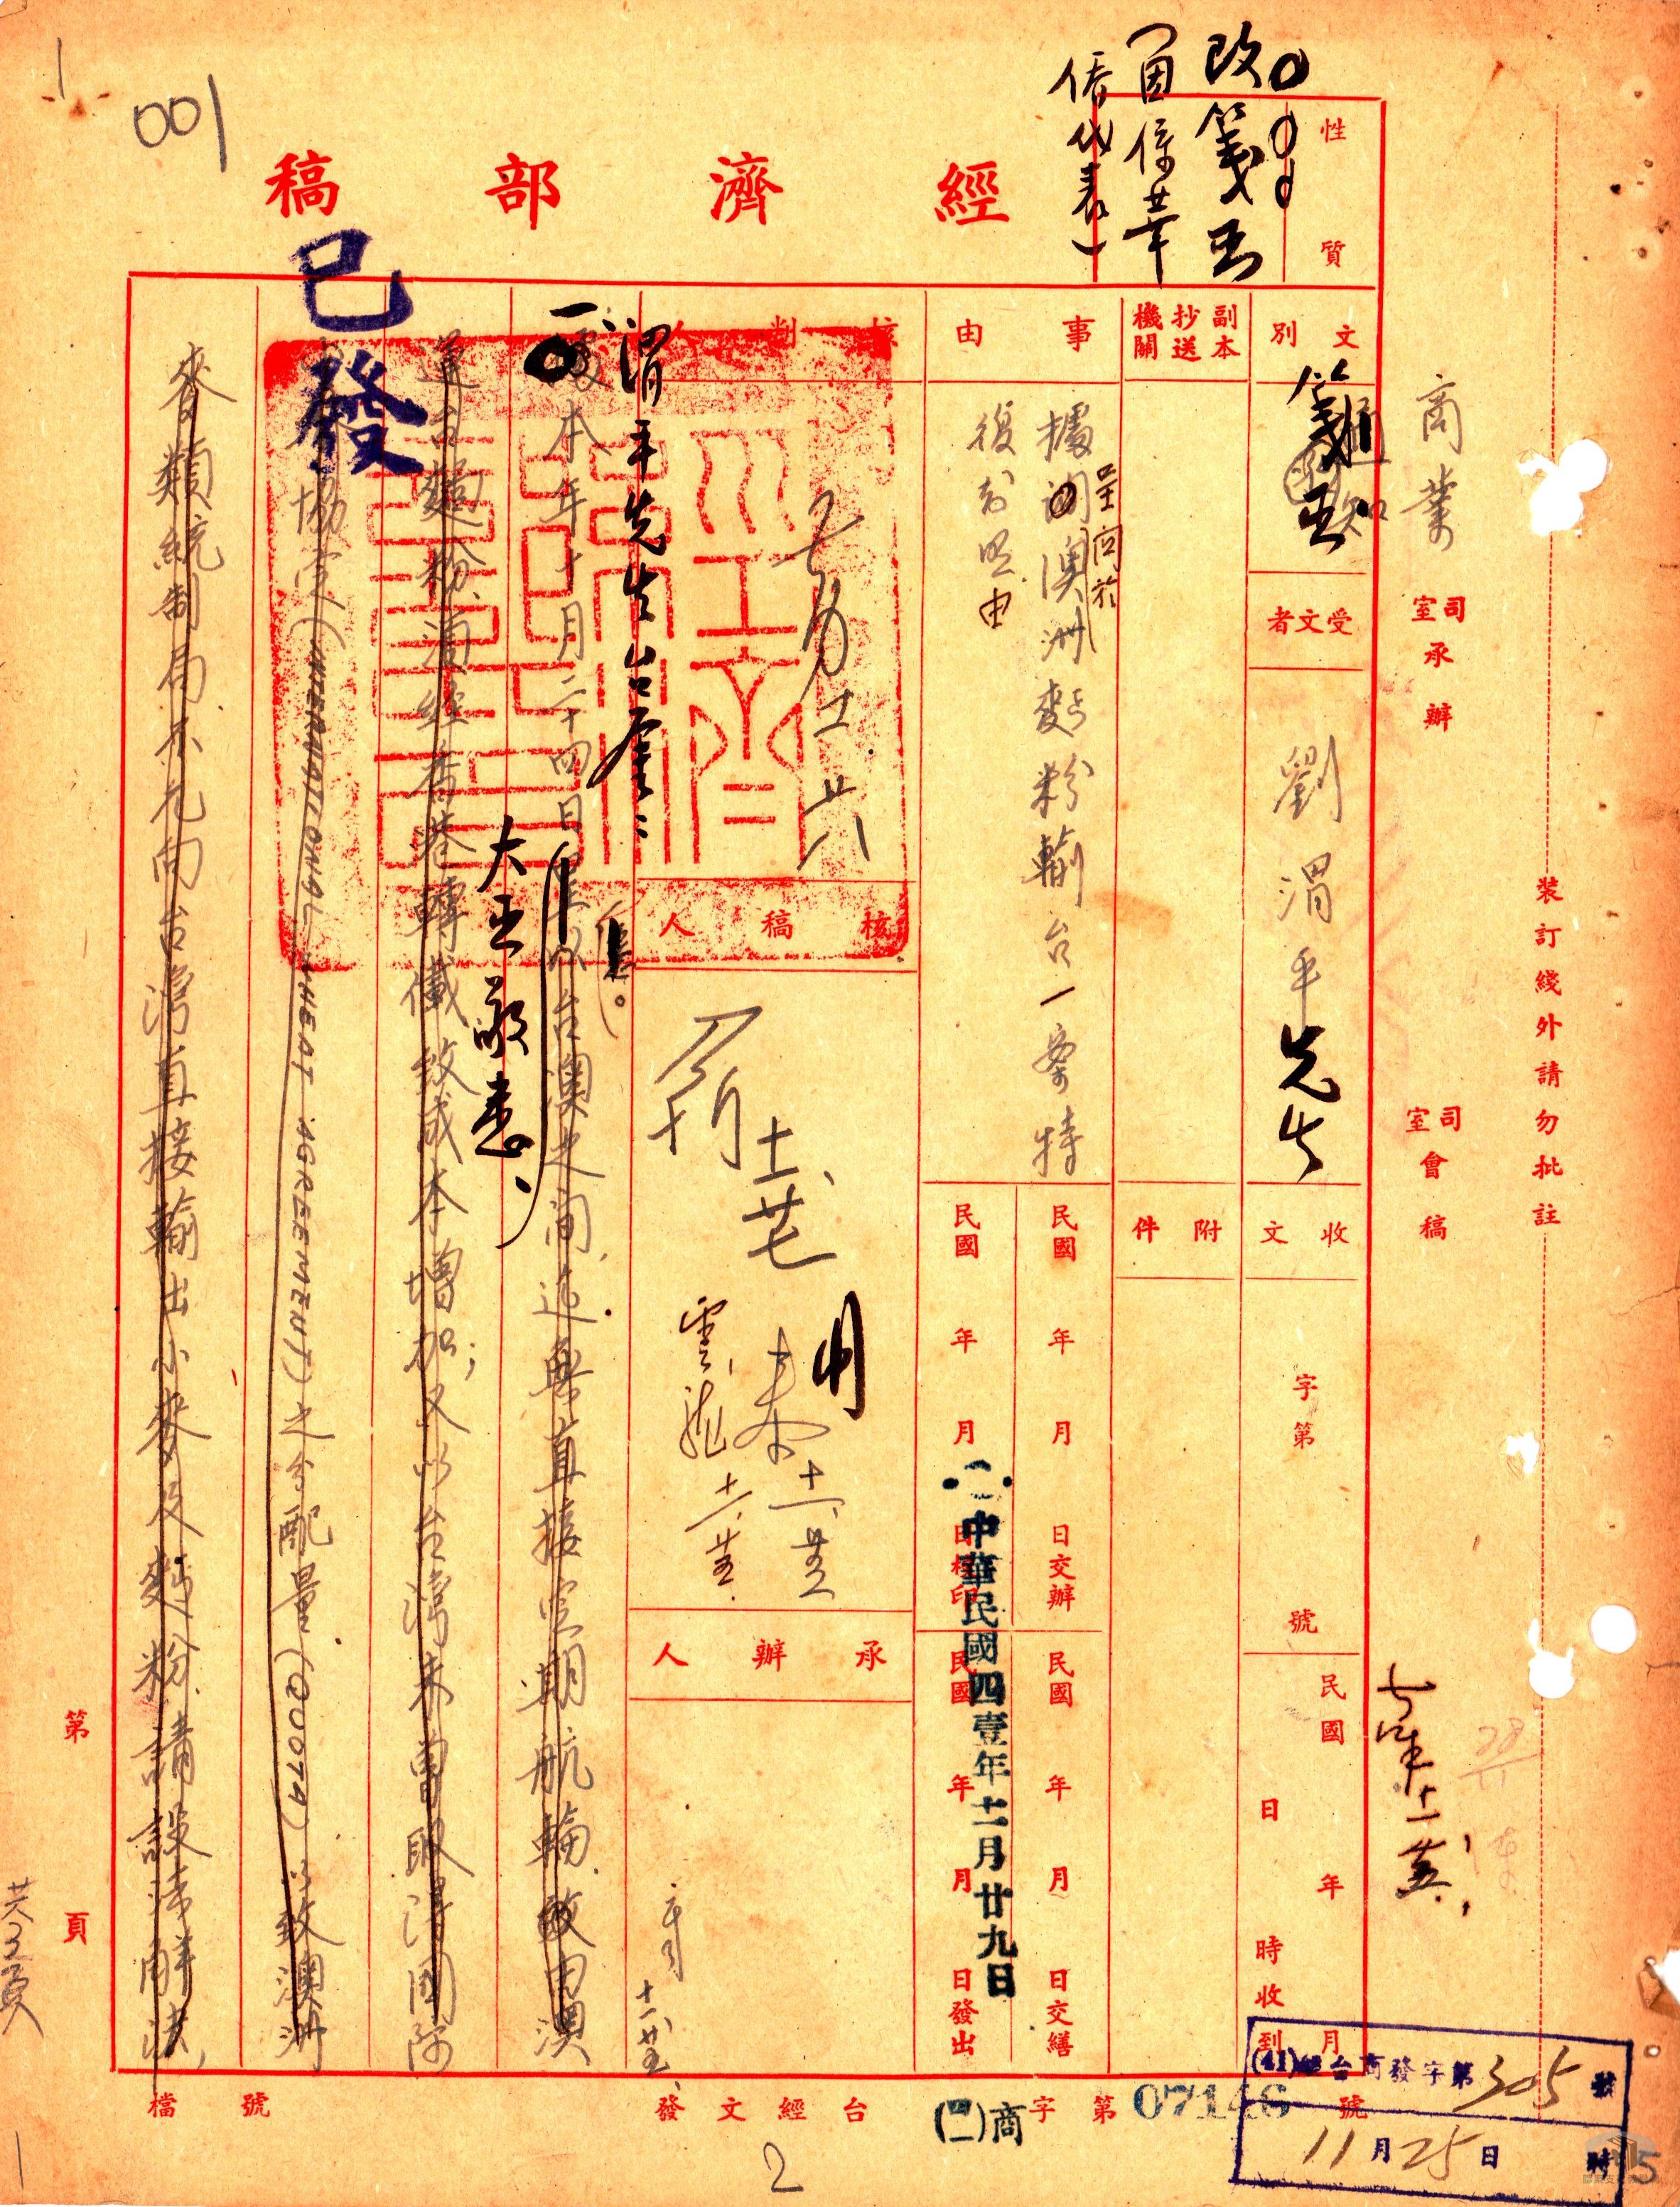 001
改箋函
(因係華
僑代表)
性質
經濟部稿
已發
文別
箋函
通知
受文者
劉渭平先生
副本抄送機關
事由
據呈關於澳洲麵粉輸台一案特
復知照由
收文
字第
號
民國
年
月
日
時收到
附件
民國
年
月
日交辦
民國
年
月
日交繕
民國
年
月
日校印
民國
年
月
日發出
中華民國四壹年十一月廿九日
核判人
核稿人
承辦人
渭平先生台鑒：
一、
本年十月二十四日
大函敬悉、
以台澳之間、迄無直接定期航輪、故由澳
運台麵粉、須經香港轉儎、致成本增加；又以台灣未曾取得國際
小麥協定(INTERNATIONAL WHEAT AGREEMENT)之分配量(QUOTA)、以致澳洲
麥類統制局不允向台灣直接輸出小麥及麵粉、請設法解決、
商業
司室承辦
司室會稿
裝訂綫外請勿批註
第
頁
共3頁
檔號
發文經台
(四一)商
字第
07146
號
(41)經台商發字第305號
11月25日
時
2
5